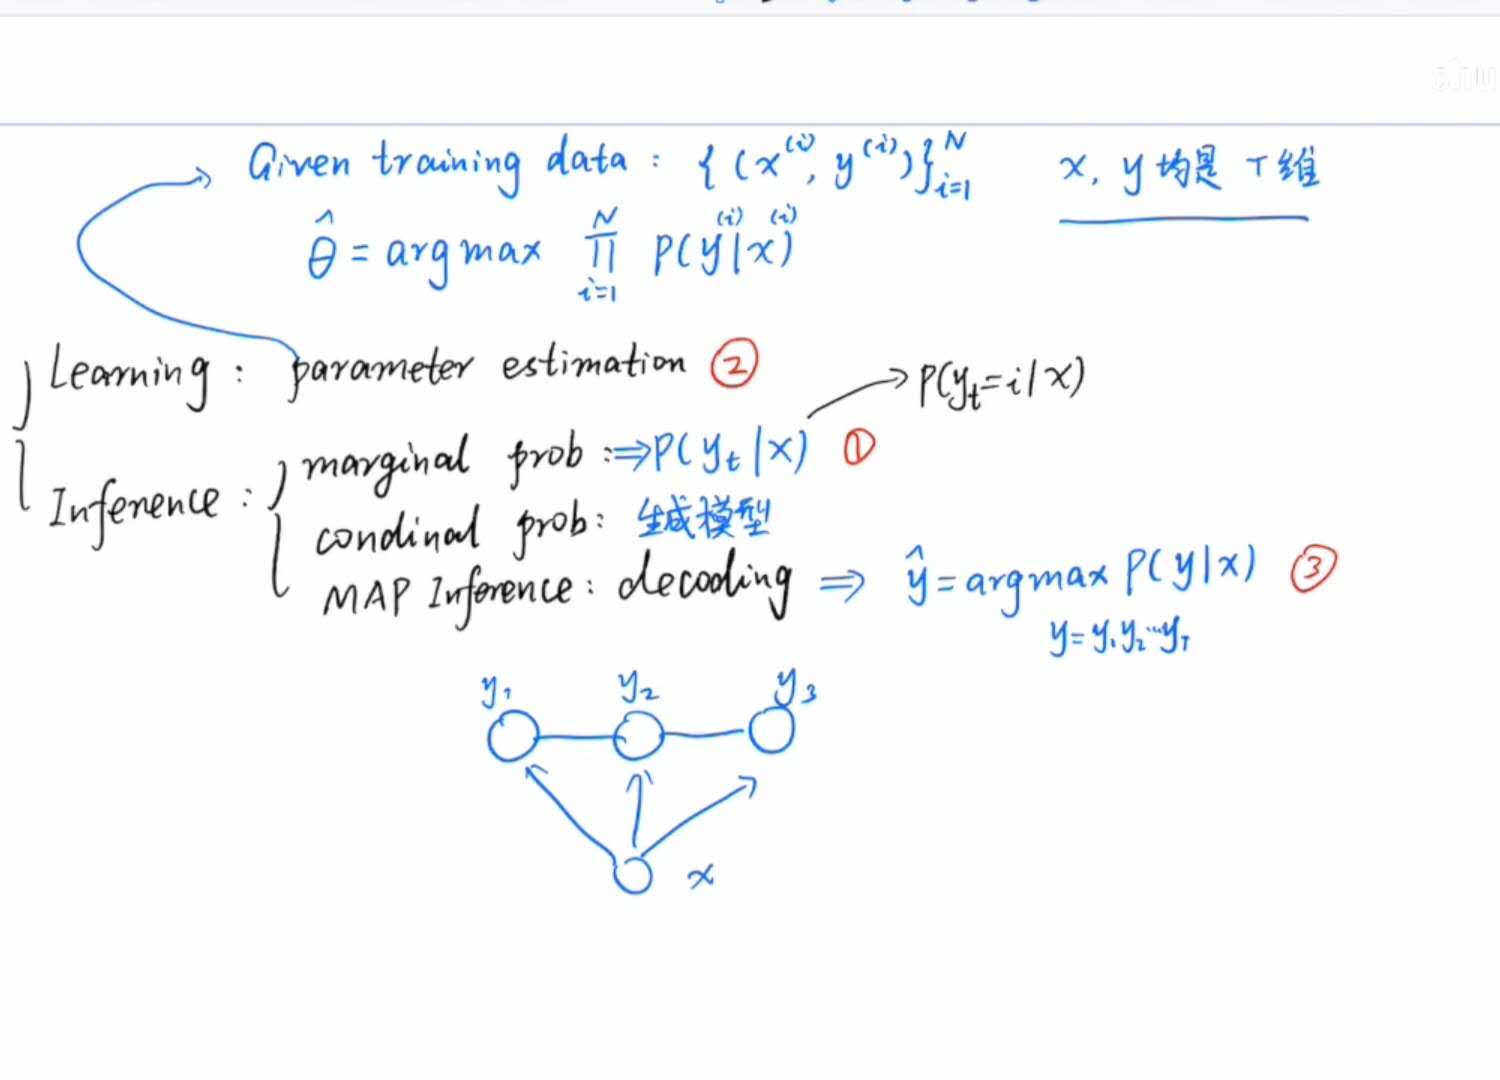 Given training data : {(x^(i), y^(i))}_{i=1}^N x, y 均是 T 维
θ̂ = argmax ∏_{i=1}^N P(y^(i)|x^(i))
Learning : parameter estimation ②
P(y_t=i|x)
Inference : marginal prob :⇒P(y_t|x) ①
condinal prob: 生成模型
MAP Inference : decoding ⇒ ŷ = argmax P(y|x) ③
y=y₁y₂…y_T
y₁ y₂ y₃
x